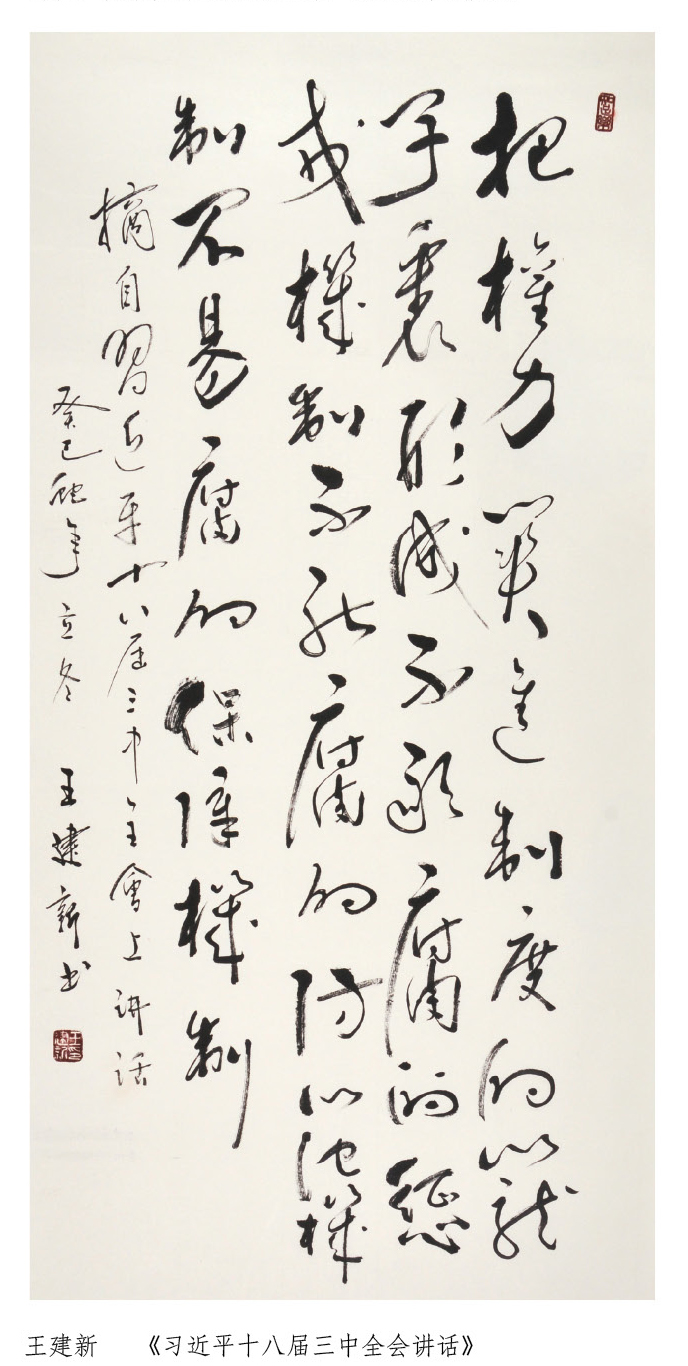 把權力關進制度的籠
子裏形成不敢腐的懲
戒機制不能腐的防範機
制不易腐的保障機制
摘自習近平十八届三中全會上讲话
癸巳蛇年立冬 王建新书
王建新 《习近平十八届三中全会讲话》